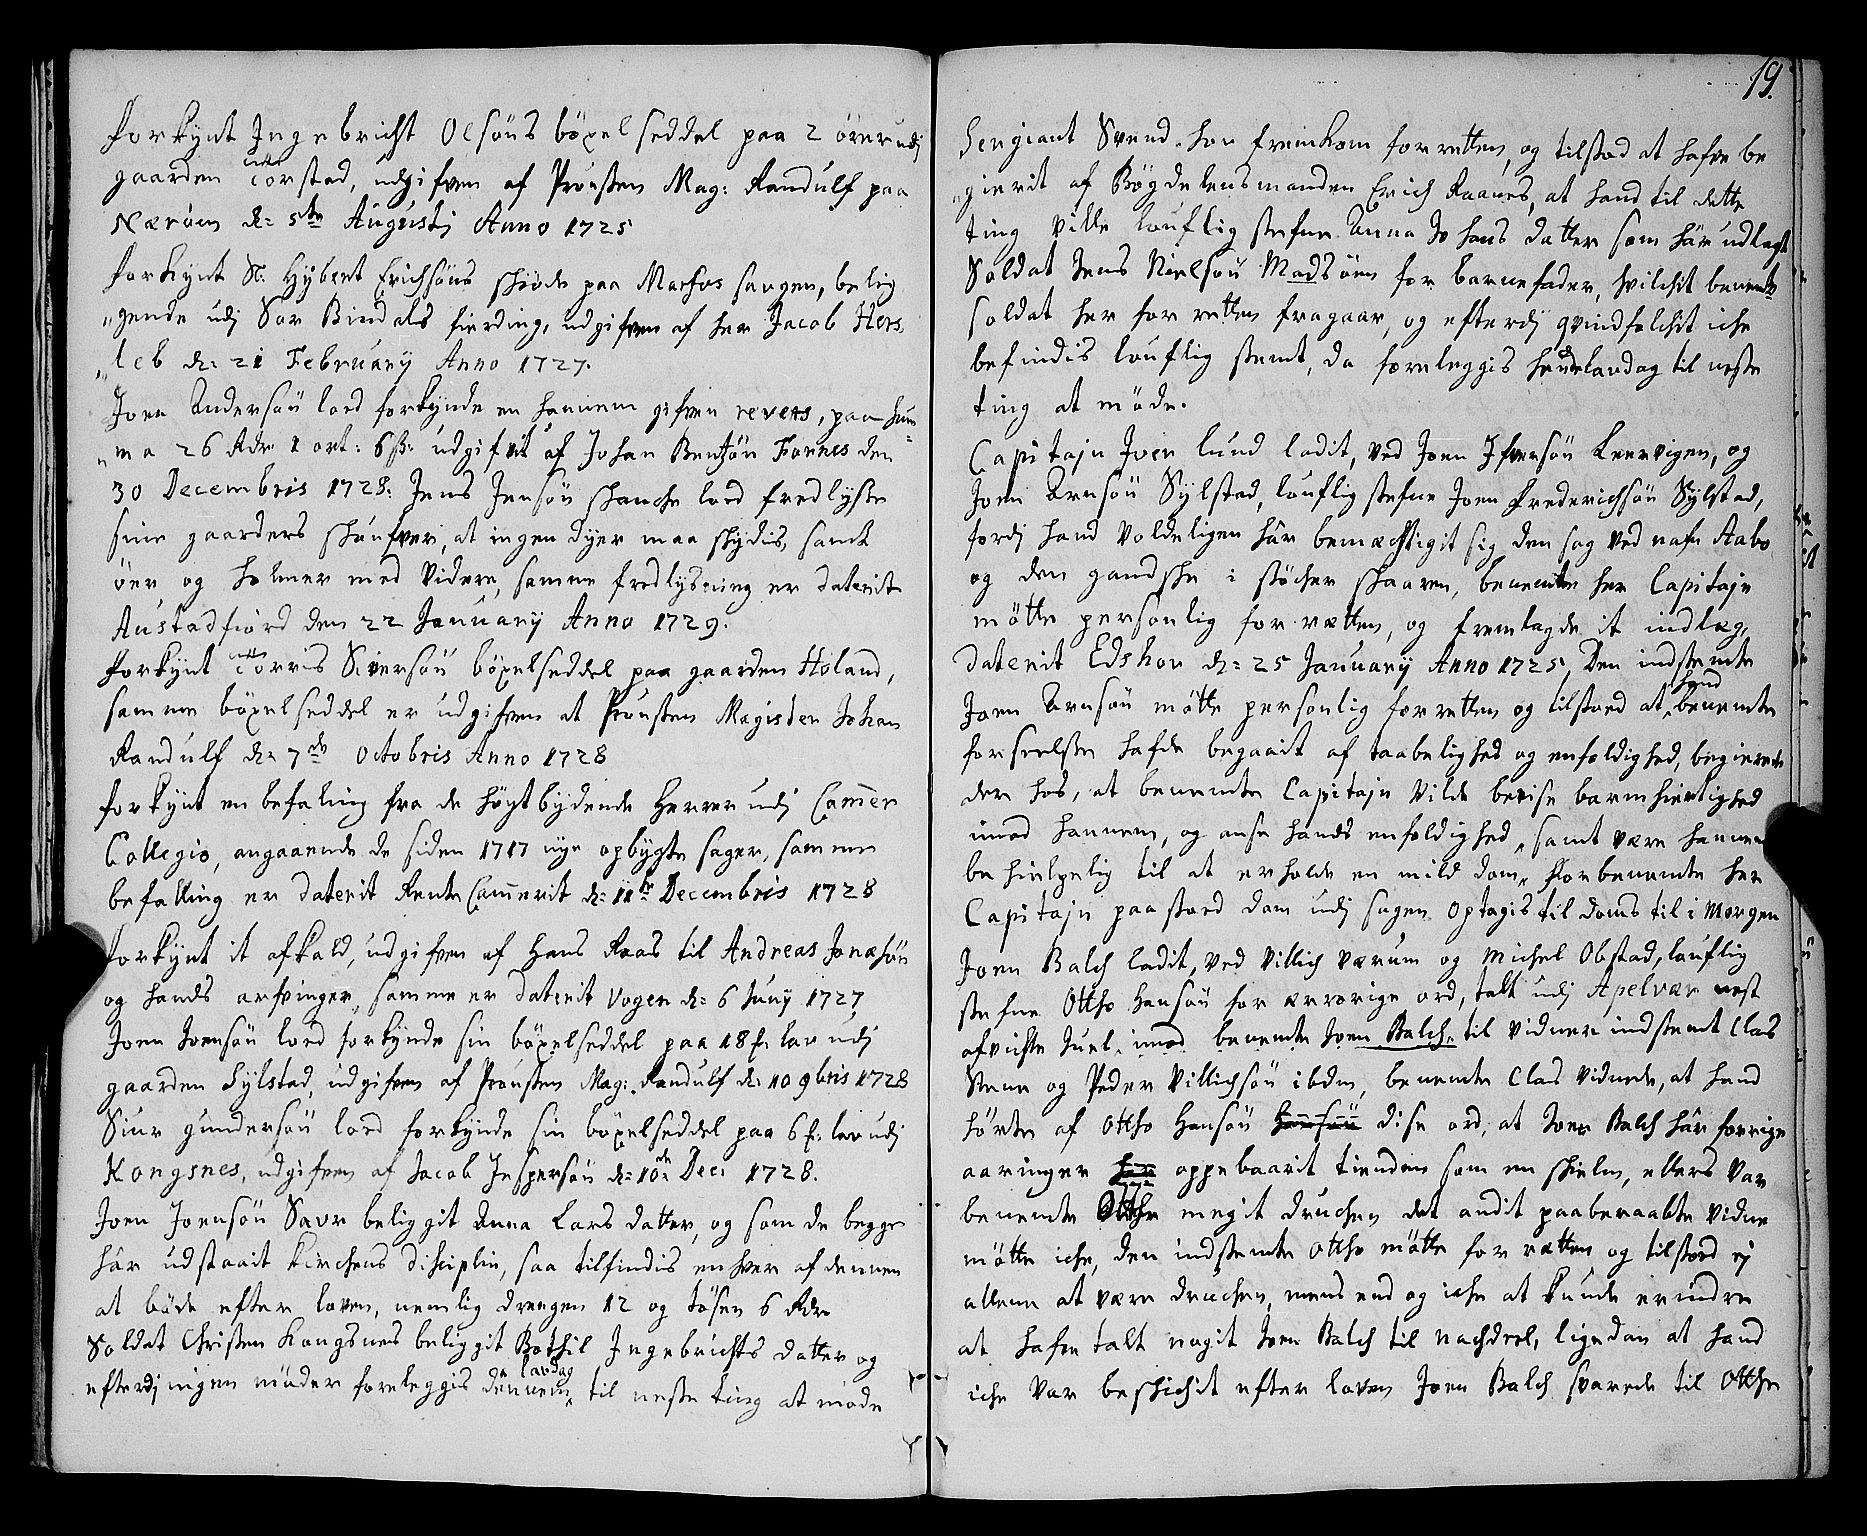 forkynt Ingebricht Olsöns böxelseddel paa 2 örer udj
gaarden Torstad, udgifven af Prousten Mag: Randulf paa
Næröen d: 5te Augustj Anno 1725
forkynt Sr: Hybert Erichsöns skiöde paa Marfos saugen, belig
„gende udj Sör Bindals fierding, udgifven af her Jacob Hers
„leb d: 21 February Anno 1727.
Joen Andersön lod forkynde en hannem gifven revers, paa sum
„ma 26 Rdr 1 ort: 6 ß: udgifvit af Johan Bentsön Fornes den
30 Decembris 1728. Jens Jensön skanche lod fredlyste
sine gaarders skoufver, at ingen dyer maa skydis, samt
öer og holmer med videre, samme fredlysning er daterit
Austadfiord den 22 January Anno 1729.
forkynt Torris Siversön böxelseddel paa gaarden Holand,
samme böxelseddel er udgifven af Prousten Magister Johan
Randulf d: 7de Octobris Anno 1728
forkynt en befaling fra de höytbydende Herrer udj Cammer
Collegio, angaaende de siden 1717 nye opbygte sager, samme
befalling er daterit Rente Cammerit d: 11te Decembris 1728
forkynt it afkald, udgifven af Hans Raas til Andreas Jonæsön
og hands arfvinger, samme er daterit Vogen d: 6 Juny 1727
Joen Joensön lod forkynde sin böxelseddel paa 18 f: lav udj
gaarden Sylstad, udgifven af Prousten Mag: Randulf d: 10 9bris 1728
Siur gundersön lod forkynde sin böxelseddel paa 6 f: lav udj
Kongsnes, udgifven af Jacob Jespersön d: 10de Dec: 1728.
Joen Joensön Saur beliggit Anna Lars datter, og som de begge
hår udstaait kirchens disciplin, saa tilfindis enhver af dennem
at böde efter loven, nemlig drengen 12 og tösen 6 Rdr
Soldat Christen Kongsnes beliggit Bothil Ingebrichts datter og
efterdj ingen möder foreleggis dennem lavdag til neste ting at möde
19.
Sergiant Svend. hor fremkom for retten, og tilstod at hafve be
„gierit af Bögdelensmanden Erich Raanes, at hand til dette
ting ville louflig stefne Anna Johans datter som hår udlagt
Soldat Jens Nielsön Madsöen for barnefader, hvilchit benemte
soldat her for retten fragaar, og efterdj qvindfolchit iche
befindis louflig stemt, da foreleggis hende lavdag til neste
ting at möde.
Capitajn Joen Lund ladit, ved Joen Ifversön Leervigen, og
Joen Arnsön Sylstad, louflig stefne Joen Frederichsön Sylstad,
fordj hand voldeligen hår bemæchtigit sig den sag ved nafn Aabo
og den gandske i stöcher skaaren, benemte her Capitajn
mötte personlig for rætten, og fremlagde it indlæg,
daterit Edshou d: 25 January Anno 1725, Den indstemte
Joen Arnsön mötte personlig for retten og tilstoed at hand benemte
forseelse hafde begaait af taabelighed og enfoldighed, begierede
der hos, at benemte Capitajn vilde bevise barmhiertighed
imod hannem, og anse hands enfoldighed, samt være hannem
behielpelig til at erholde en mild dom, forbenemte her
Capitajn paastod dom udj sagen Optagis til doms til i morgen
Joen Balch ladit, ved Villich Værum og Michel Obstad, louflig
stefne Ottho Hansön for ærrörige ord, talt udj Apelvær nest
afvichte Juel, imod benemte Joen Balch, til vidner indstemt Clas
Stene og Peder Villichsön ibdm, benemte Clas vidnede, at hand
hörte af Ottho Hansön hansön dise ord, at Joen Balch hår forrige
aaringer har oppebaarit tienden som en skielm, ellers var
benemte Ottho megit druchen det andit paaberaabte vidne
mötte iche, den indstemte Ottho mötte for rætten og tilstod ej
allene at være druchen, mens end og iche at kunde erindre
at hafve talt nogit Joen Balch til nachdeel, ligedan at hand
iche var beskichit efter loven Joen Balch svarede til Ottho